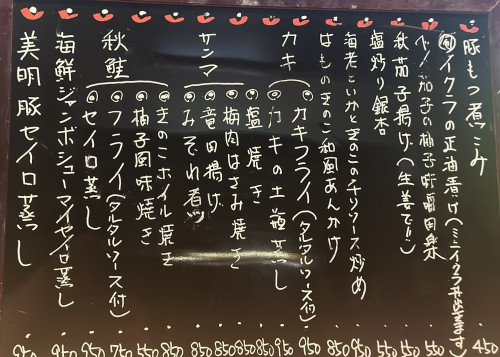 豚もつ煮こみ 450
㊒イクラの正油漬け(ミニイクラ丼出来ます)
小ナス茄子の柚子味噌田楽 550
秋茄子揚げ(生姜で!!) 550
塩炒り銀杏 550
海老といかときのこのチリソース炒め 950
はものきのこ和風あんかけ 850
カキ
◎カキフライ(タルタルソース付) 950
◎カキの土瓶蒸し 950
サンマ
◎塩焼き 850
◎梅肉はさみ焼き 850
◎竜田揚げ 850
◎みぞれ煮 850
秋鮭
◎きのこホイル焼き 850
◎柚子風味焼き 550
◎フライ(タルタルソース付) 750
◎セイロ蒸し 950
海鮮ジャンボシューマイセイロ蒸し 950
美明豚セイロ蒸し 950